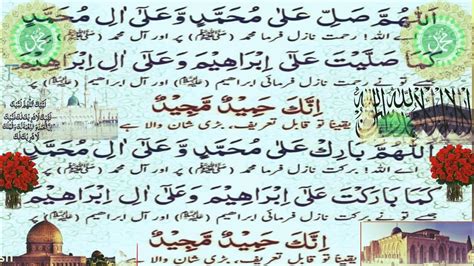 اَللّٰهُمَّ صَلِّ عَلٰی مُحَمَّدٍ وَّعَلٰی اٰلِ مُحَمَّدٍ
اے اللہ! رحمت نازل فرما محمد (ﷺ) پر اور آل محمد (ﷺ) پر
كَمَا صَلَّيْتَ عَلٰی اِبْرَاهِيْمَ وَعَلٰی اٰلِ اِبْرَاهِيْمَ
جیسے تو نے رحمت نازل فرمائی ابراہیم (ﷺ) پر اور آل ابراہیم پر
اِنَّكَ حَمِيْدٌ مَّجِيْدٌ
یقیناً تو قابل تعریف، بڑی شان والا ہے
اَللّٰهُمَّ بَارِكْ عَلٰی مُحَمَّدٍ وَّعَلٰی اٰلِ مُحَمَّدٍ
اے اللہ! برکت نازل فرما محمد (ﷺ) پر اور آل محمد (ﷺ) پر
كَمَا بَارَكْتَ عَلٰی اِبْرَاهِيْمَ وَعَلٰی اٰلِ اِبْرَاهِيْمَ
جیسے تو نے برکت نازل فرمائی ابراہیم (ﷺ) پر اور آل ابراہیم پر
اِنَّكَ حَمِيْدٌ مَّجِيْدٌ
یقیناً تو قابل تعریف، بڑی شان والا ہے
محمد
محمد